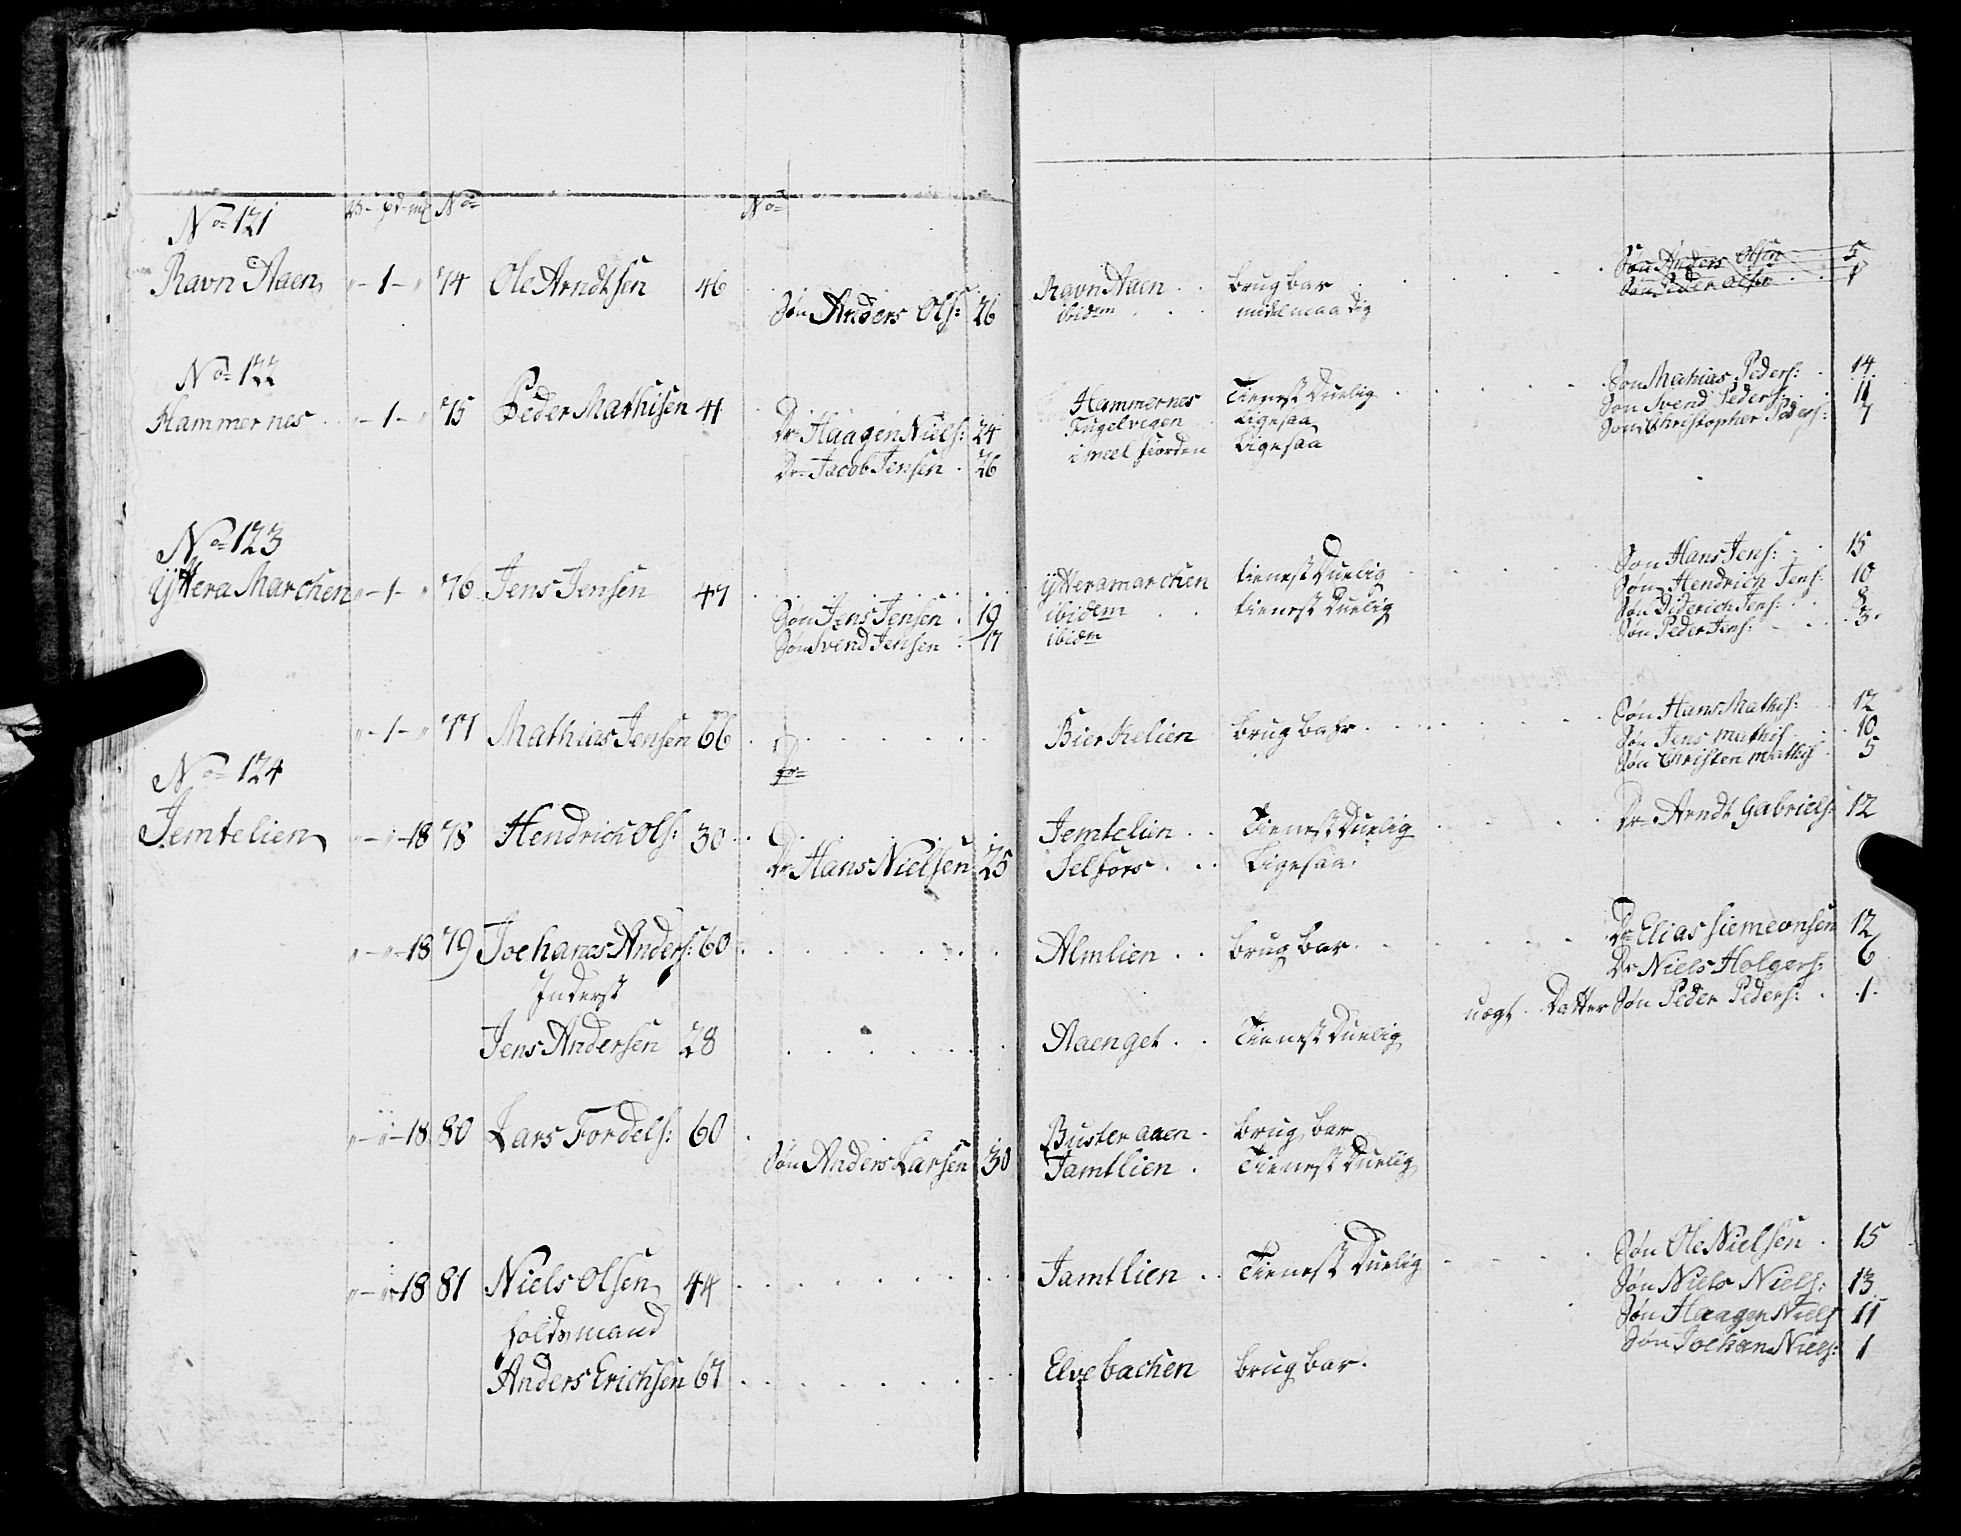 No 121
Ravn Aaen " - 1 - " 74 Ole Arndtsen 46 Ravn Aaen brugbar Søn Anders Olsen 5
Søn Peder Olsen 1
Søn Anders Ols: 26 ibidem midelmaadig
No 122
Hammernes " - 1 - " 75 Peder Mathisen 41 Hammernes Tienest Duelig Søn Mathias Peders: 14
Søn Svend Peders: 11
Dr Haagen Niels: 24 Fugelvigen Ligesaa Søn Christopher Peders: 7
Dr Jacob Jensen 26 i meel fiorden Ligesaa
No 123
Yttera Marchen " - 1 - " 76 Jens Jensen 47 Ytteramarchen tienest Duelig Søn Hans Jens: 15
Søn Hendrich Jens: 10
Søn Jens Jensen 19 ibidem tienest Duelig Søn Diderich Jens: 8
Søn Svend Jensen 17 ibidm Søn Peder Jens: 3
" - 1 - " 77 Mathias Jensen 66 Bierkelien brugbahr Søn Hans Mathis: 12
Søn Jens Mathis 10
Søn Christen Mathis 5
No 124
Jemtelien " - " - 18 78 Hendrich Ols: 30 Jemtelien Tienest Duelig Dr Arndt Gabriels: 12
Dr Hans Nielsen 25 Selfors Ligesaa
" - " - 18 79 Jochanes Anders: 60 Almlien brugbar Dr Elias Siemeonsen 12
Dr Niels Holgers: 6
Inderst uægt Datter Søn Peder Peders: 1
Jens Andersen 28 Aaenget Tienest Duelig
" - " - 18 80 Lars Tordels: 60 Busteraaen brugbar
Søn Anders Larsen 30 Jamtlien Tienest Duelig
" - " - 18 81 Niels Olsen 44 Jamtlien Tienest Duelig Søn Ole Nielsen 15
Søn Niels Niels: 13
Søn Haagen Niels 11
Søn Jochan Niels: 1
Anders Erichsen 67 Elvebachen brugbar